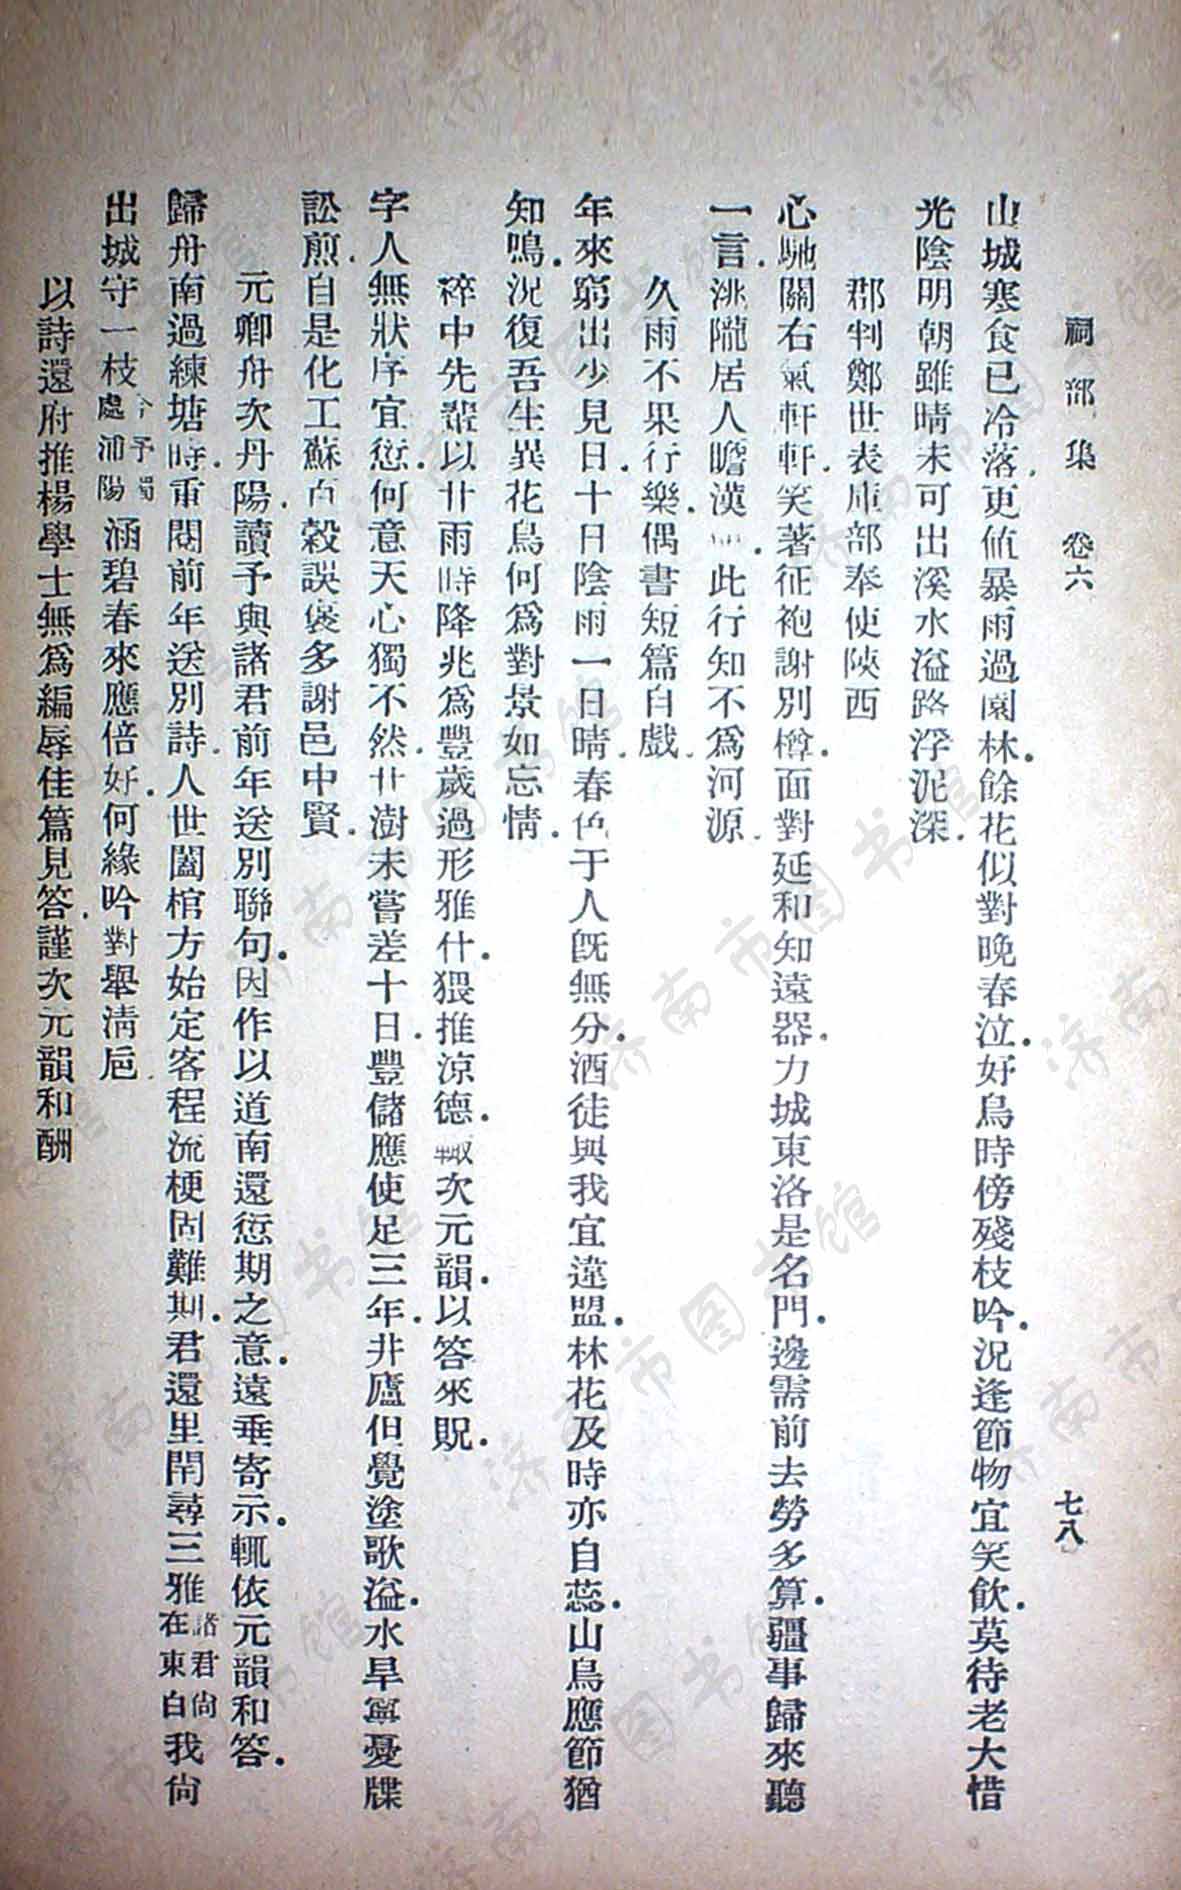 祠部集　卷六　七八
山城寒食已冷落更値暴雨過園林．餘花似對晚春泣．好鳥時傍殘枝吟．況逢節物宜笑飲．莫待老大惜
光陰明朝雖晴未可出溪水溢路浮泥深．
郡判鄭世表庫部奉使陝西
心馳關右氣軒軒．笑著征袍謝別樽．面對延和知遠器．力城東洛是名門．邊需前去勞多算．疆事歸來聽
一言．洮隴居人瞻漢．此行知不爲河源．
久雨不果行樂．偶書短篇自戲．
年來窮出少見日．十日陰雨一日晴．春色于人旣無分．酒徒與我宜違盟．林花及時亦自蕊．山鳥應節猶
知鳴．況復吾生異花鳥何爲對景如忘情．
稡中先輩以廿雨時降兆爲豐歲過形雅什．猥推涼德．輙次元韻．以答來貺．
字人無狀序宜愆．何意天心獨不然．廿澍未嘗差十日．豐儲應使足三年．井廬但覺塗歌溢．水旱寧憂牒
訟煎．自是化工蘇百穀誤褒多謝邑中賢．
元卿舟次丹陽．讀予與諸君前年送別聯句．因作以道南還愆期之意．遠垂寄示．輒依元韻和答．
歸舟南過練塘時．重閱前年送別詩．人世闔棺方始定客程流梗固難期．君還里閈尋三雅諸君尙在東白我尙
出城守一枝今予獨處浦陽涵碧春來應倍好．何緣吟對舉淸巵．
以詩還府推楊學士無爲編辱佳篇見答．謹次元韻和酬